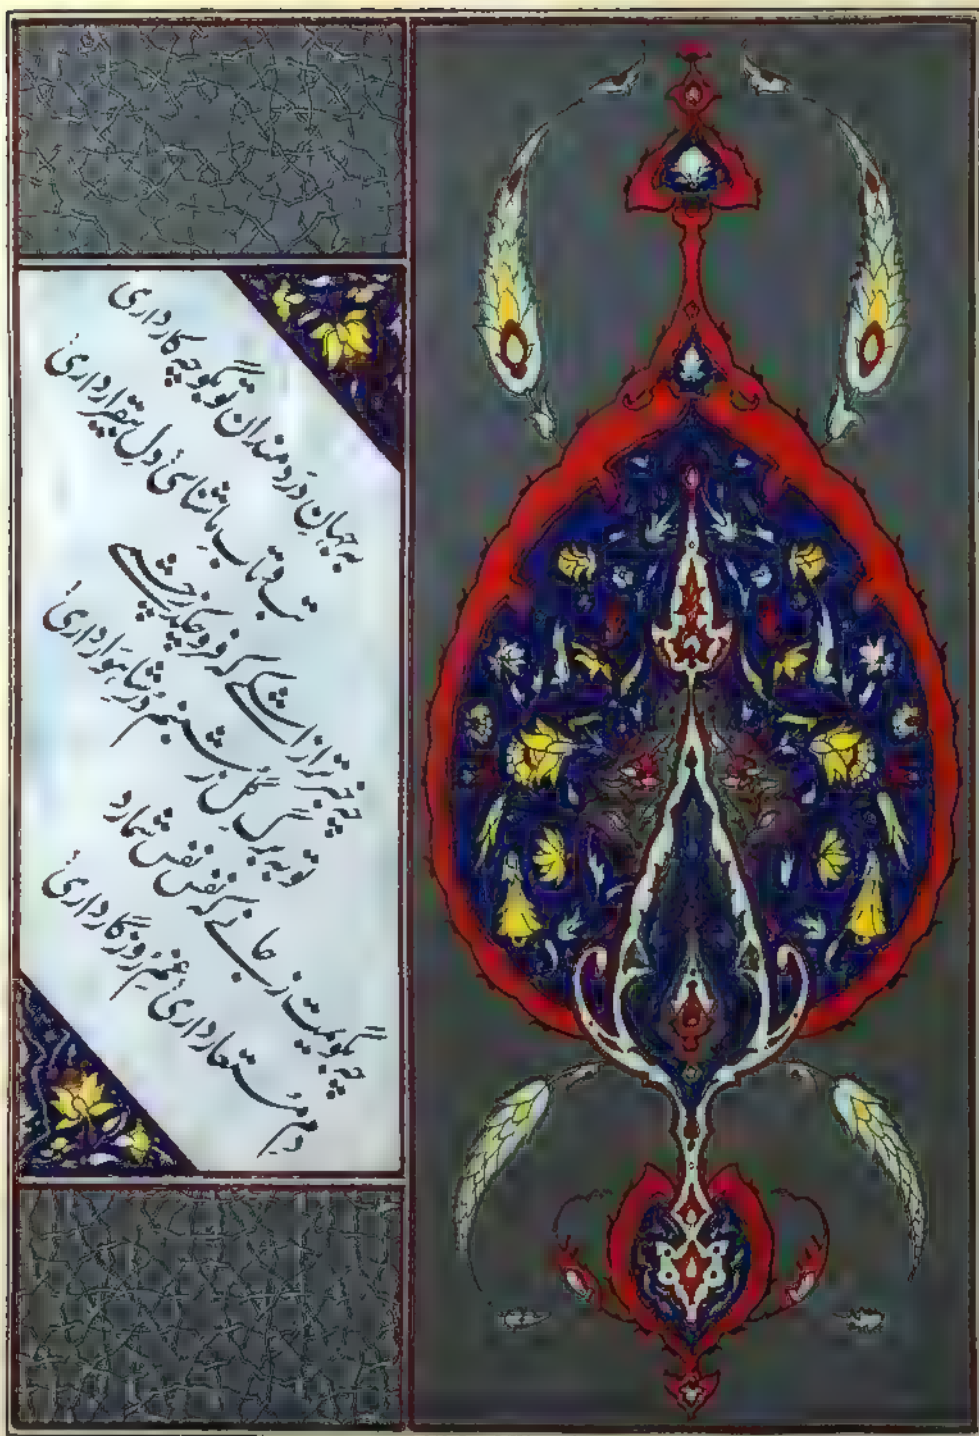 به جهانِ دَردمندان تو بگو چه کار داری
تب و تابِ ما شناسی؟ دلِ بیقرار داری؟
چه خبر ترا ز اشکے که فرو چکد ز چشمے
تو به برگِ گل ز شبنم دُرِ شاہوار داری!
چه بگویمت ز جانے که نفس نفس شمارد
دمِ مُستعار داری؟ غمِ روزگار داری؟